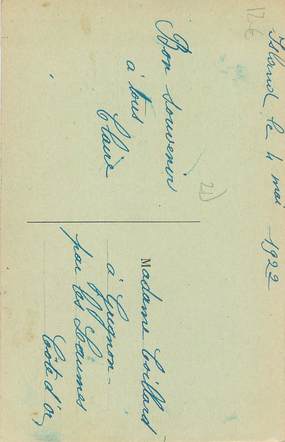 Island le 4 mai 1922
Bon souvenir
à tous
Claire
Madame Coillard
à Grignon
par les Laumes
Côte d'or